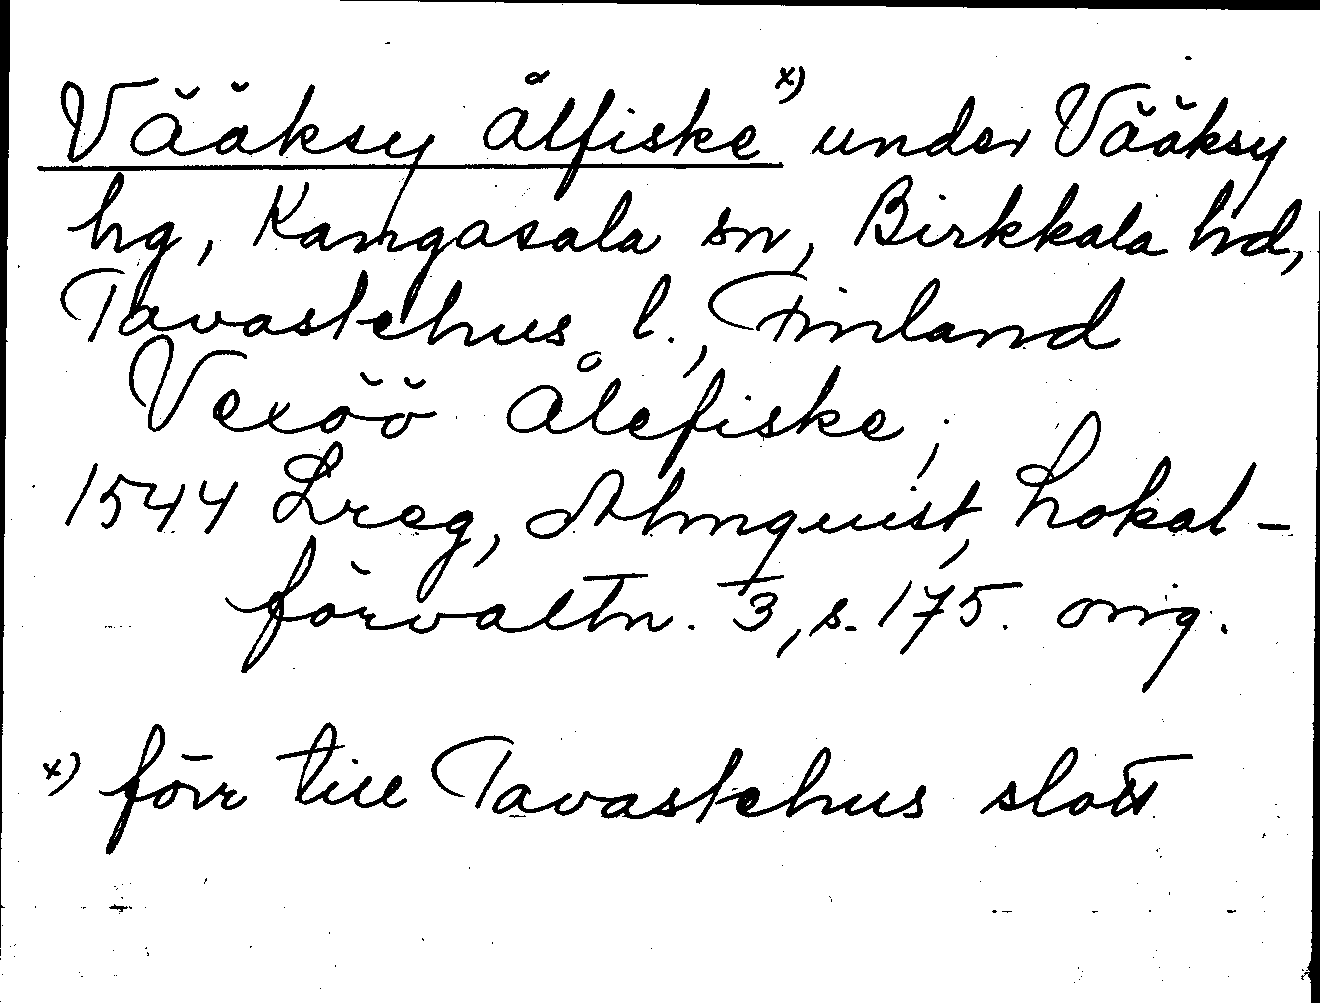 Vääksy ålfiske x) under Vääksy
hg, Kangasala sn, Birkkala hd,
Tavastehus l., Finland
Vexöö ålefiske,
1544 Lreg, Almquist, Lokal-
förvaltn. 3, s. 175. orig.
x) förr till Tavastehus slott